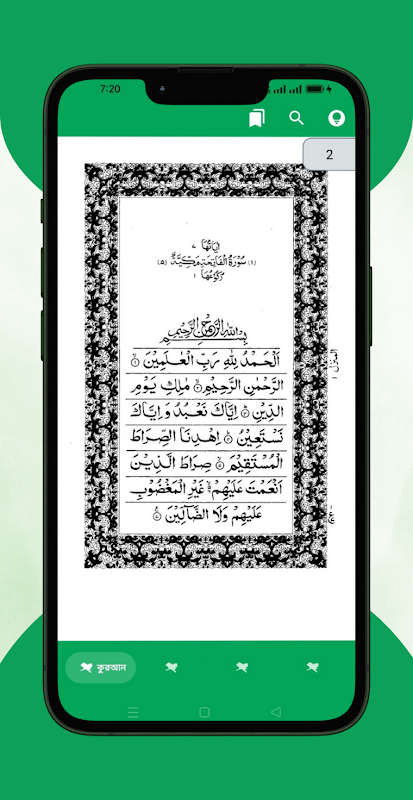 7:20
2
اٰيَاتُهَا ٧
(١) سُوْرَةُ الْفَاتِحَةِ مَكِّيَّةٌ (٥)
رُكُوْعُهَا ١
بِسْمِ اللّٰهِ الرَّحْمٰنِ الرَّحِيْمِ
اَلْحَمْدُ لِلّٰهِ رَبِّ الْعٰلَمِيْنَ ۝١
الرَّحْمٰنِ الرَّحِيْمِ ۝٢ مٰلِكِ يَوْمِ
الدِّيْنِ ۝٣ اِيَّاكَ نَعْبُدُ وَ اِيَّاكَ
نَسْتَعِيْنُ ۝٤ اِهْدِنَا الصِّرَاطَ
الْمُسْتَقِيْمَ ۝٥ صِرَاطَ الَّذِيْنَ
اَنْعَمْتَ عَلَيْهِمْ ۝٦ غَيْرِ الْمَغْضُوْبِ
عَلَيْهِمْ وَلَا الضَّآلِّيْنَ ۝٧
المنزل ١
কুরআন